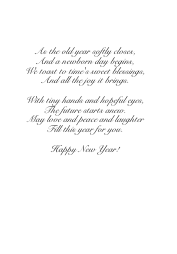 As the old year softly closes,
And a newborn day begins,
We toast to time's sweet blessings,
And all the joy it brings.
With tiny hands and hopeful eyes,
The future starts anew.
May love and peace and laughter
Fill this year for you.
Happy New Year!